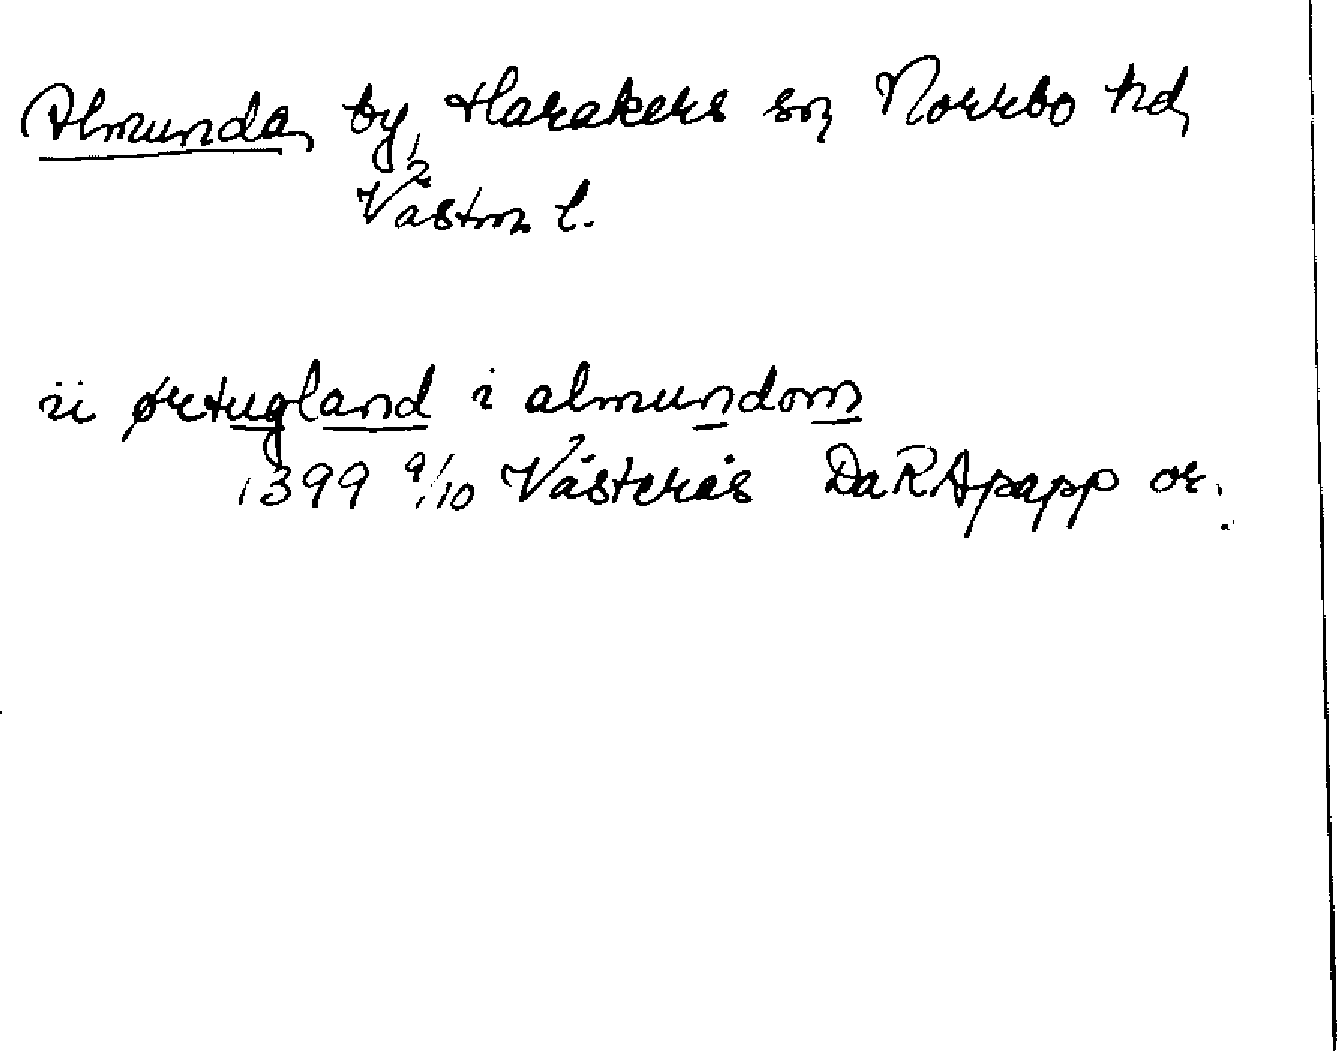 Almunda, by, Harakers sn, Norrbo hd,
Västm l.
ii ørtugland i almundom
1399 9/10 Västerås DaRApapp or.